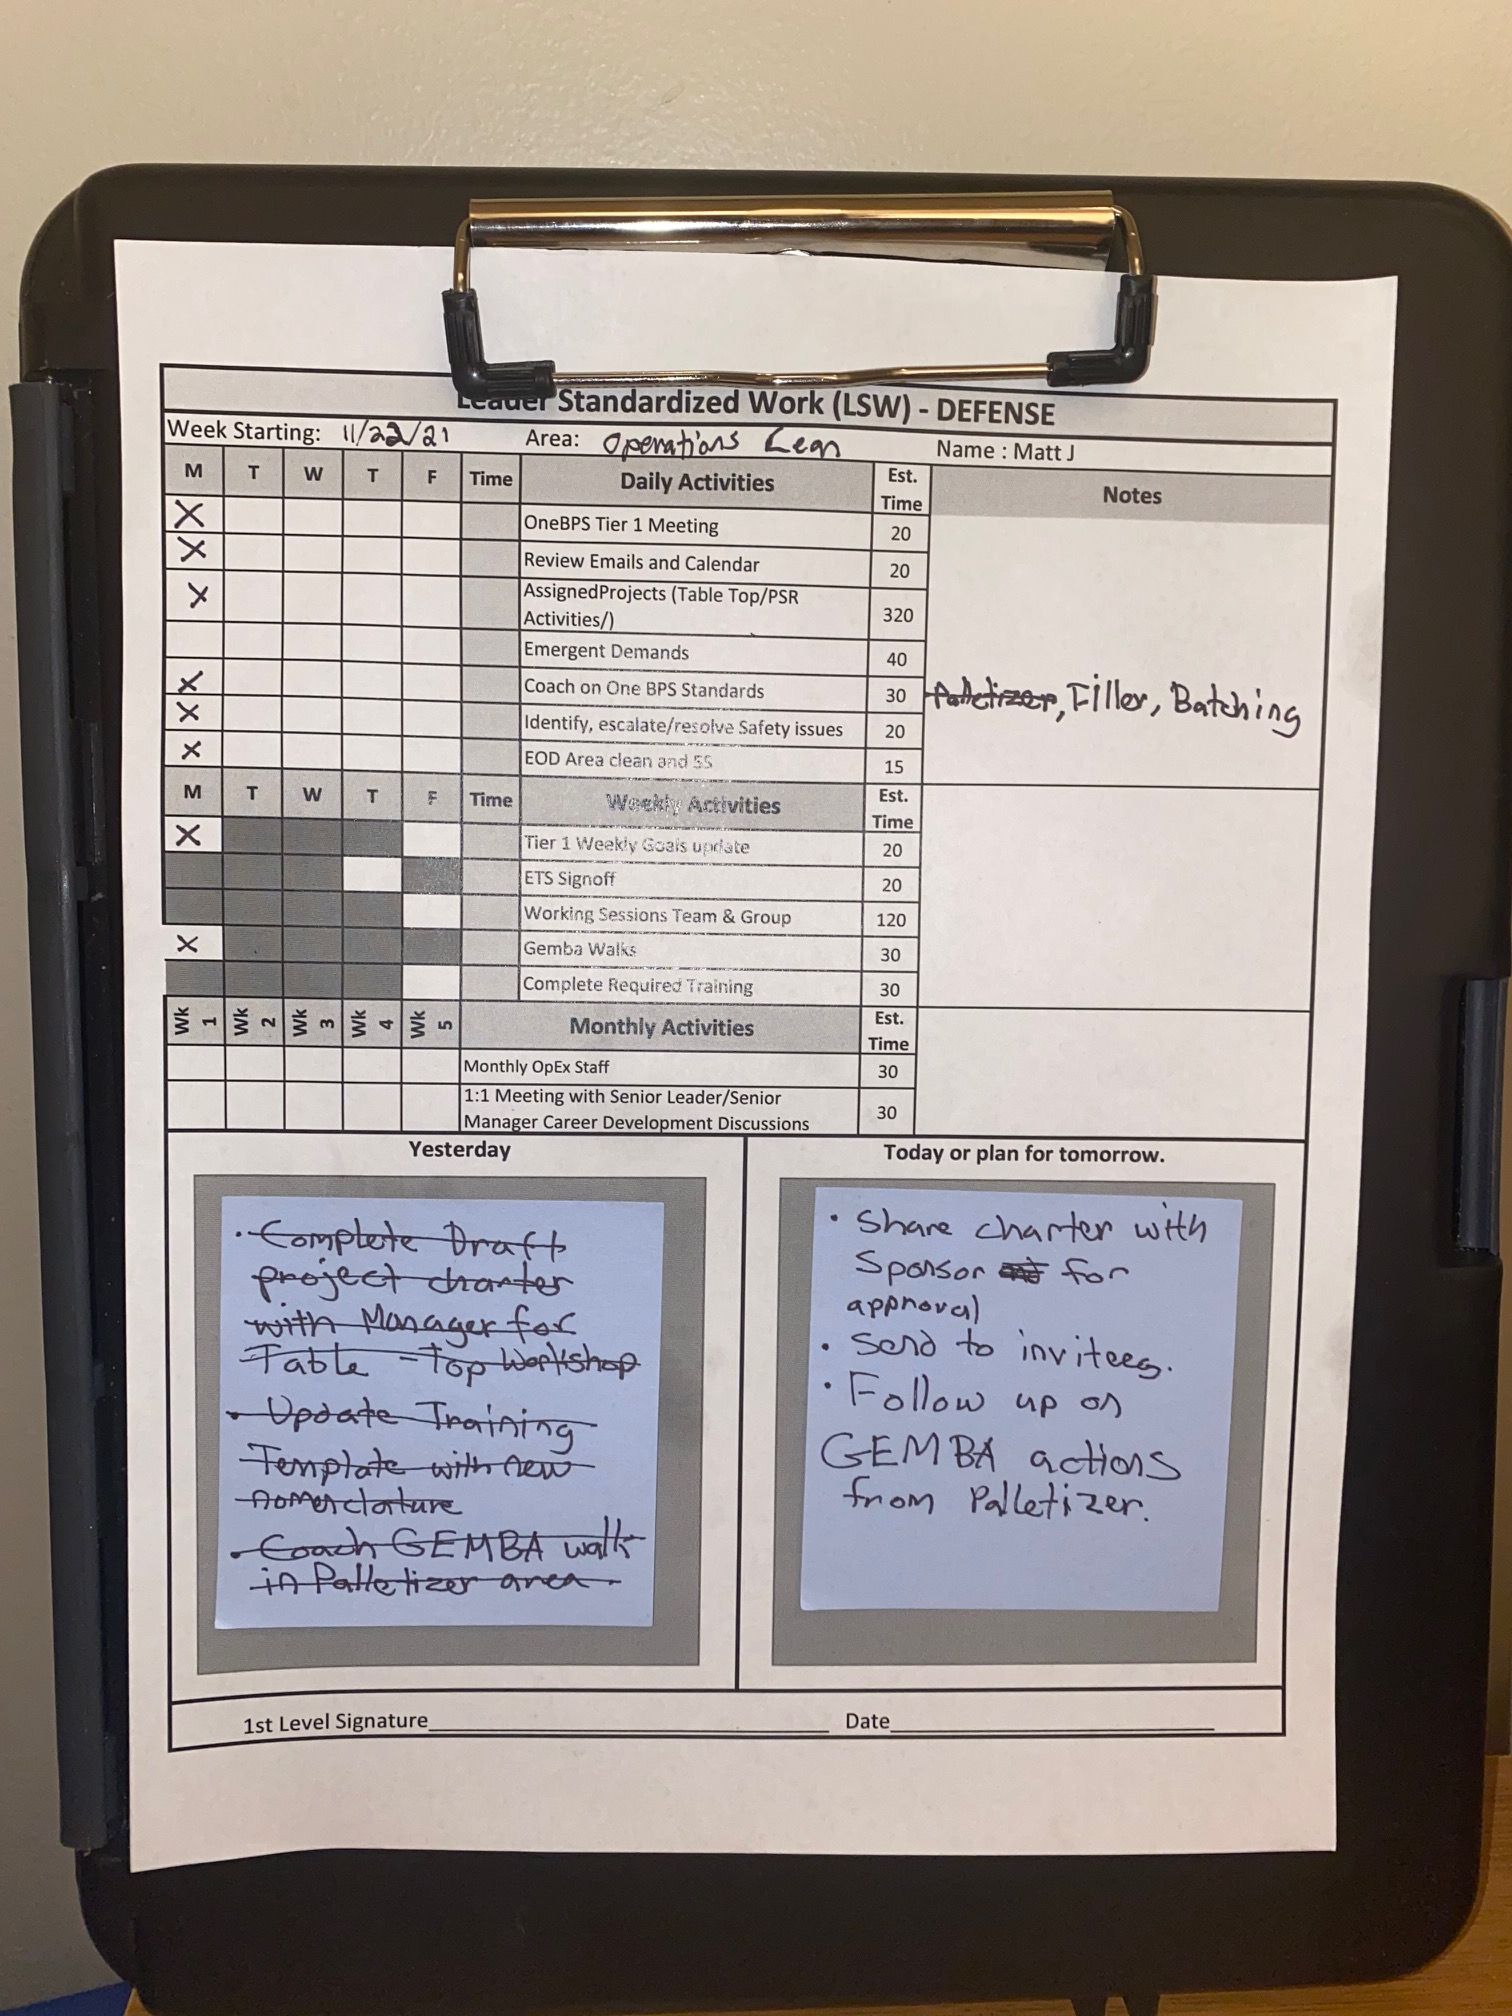 Leader Standardized Work (LSW) - DEFENSE
Week Starting: 11/22/21 Area: Operations Lean Name : Matt J
M T W T F Time Daily Activities Est. Time Notes
X OneBPS Tier 1 Meeting 20
X Review Emails and Calendar 20
X AssignedProjects (Table Top/PSR
Activities/) 320
Emergent Demands 40
X Coach on One BPS Standards 30 Palletizer, Filler, Batching
X Identify, escalate/resolve Safety issues 20
X EOD Area clean and 5S 15
M T W T F Time Weekly Activities Est. Time
X Tier 1 Weekly Goals update 20
ETS Signoff 20
Working Sessions Team & Group 120
X Gemba Walks 30
Complete Required Training 30
Wk 1 Wk 2 Wk 3 Wk 4 Wk 5 Monthly Activities Est. Time
Monthly OpEx Staff 30
1:1 Meeting with Senior Leader/Senior
Manager Career Development Discussions 30
Yesterday
• Complete Draft
project charter
with Manager for
Table - Top Workshop
• Update Training
Template with new
nomenclature
• Coach GEMBA walk
in Palletizer area.
Today or plan for tomorrow.
• Share charter with
Sponsor for
approval
• Send to invitees.
• Follow up on
GEMBA actions
from Palletizer.
1st Level Signature Date